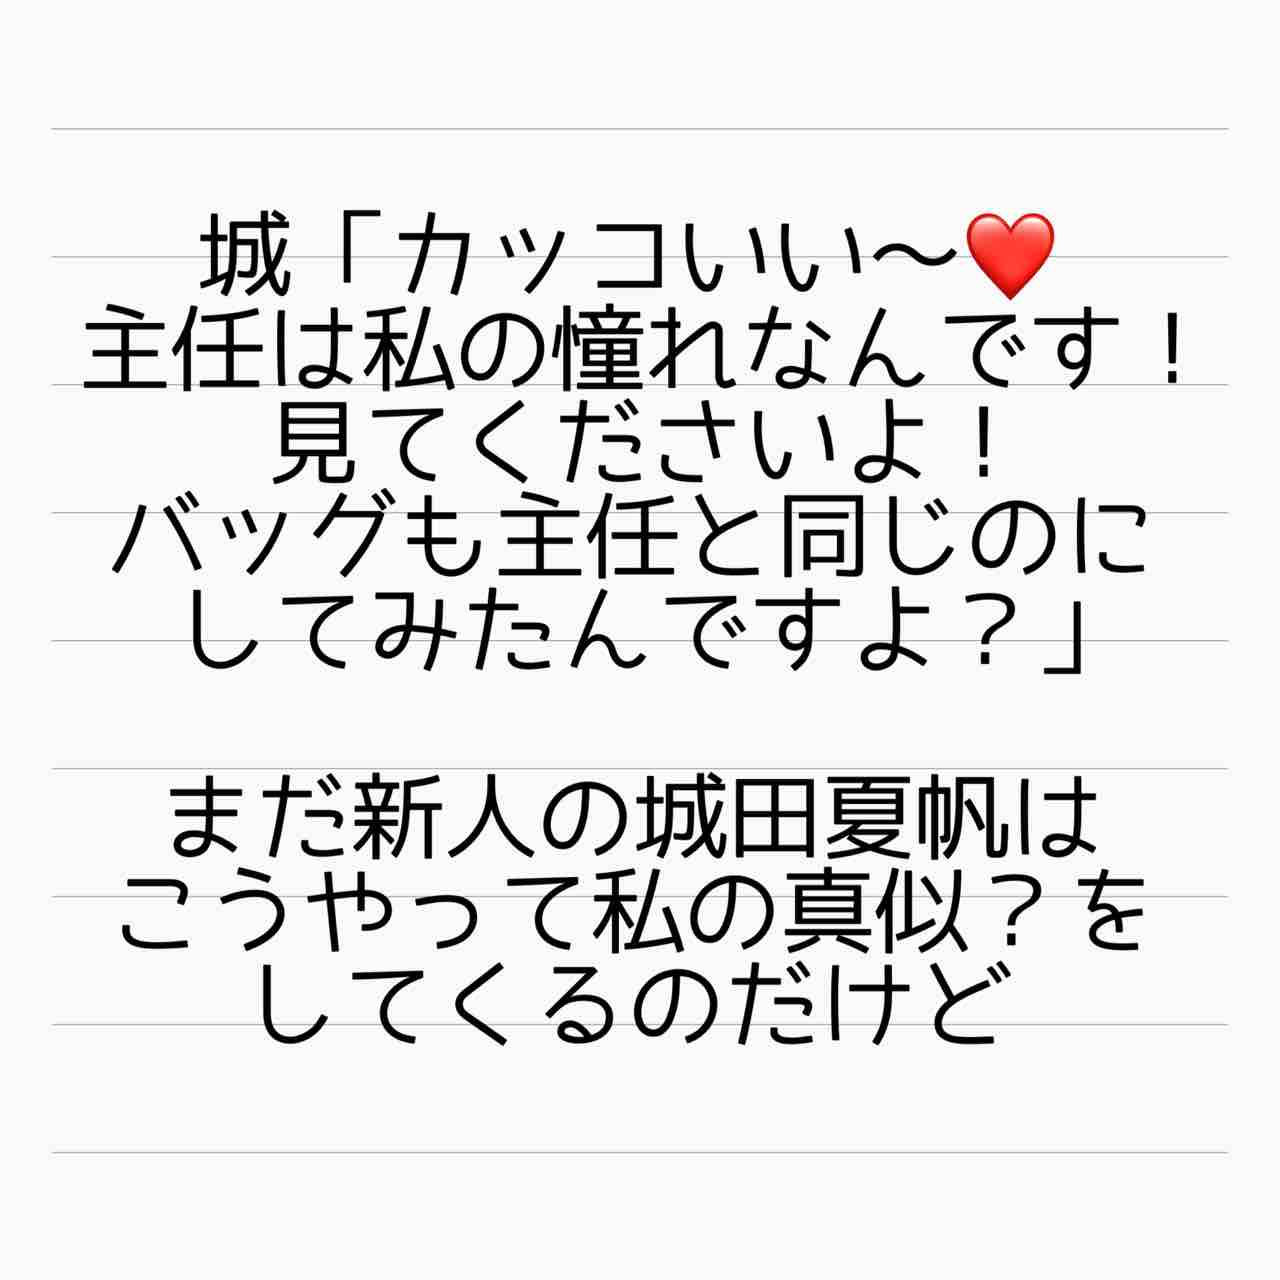 城「カッコいい〜❤️
主任は私の憧れなんです！
見てくださいよ！
バッグも主任と同じのに
してみたんですよ？」
まだ新人の城田夏帆は
こうやって私の真似？を
してくるのだけど